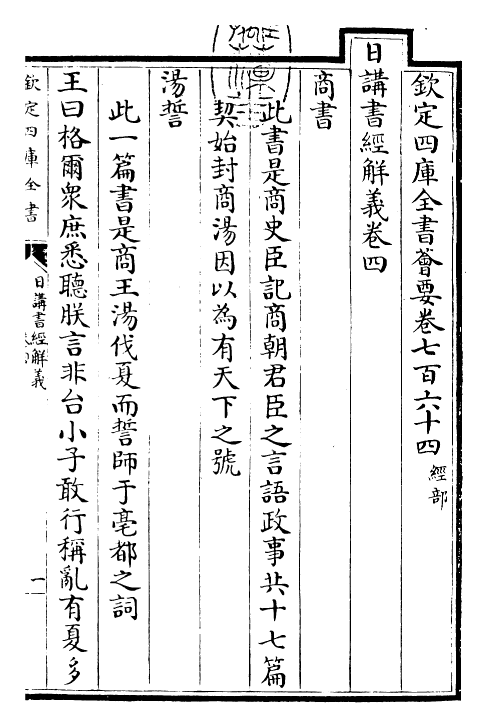 欽定四庫全書薈要卷七百六十四 經部
日講書經解義卷四
商書
此書是商史臣記商朝君臣之言語政事共十七篇
契始封商湯因以為有天下之號
湯誓
此一篇書是商王湯伐夏而誓師于亳都之詞
王曰格爾衆庶悉聽朕言非台小子敢行稱亂有夏多
欽定四庫全書
日講書經解義
一